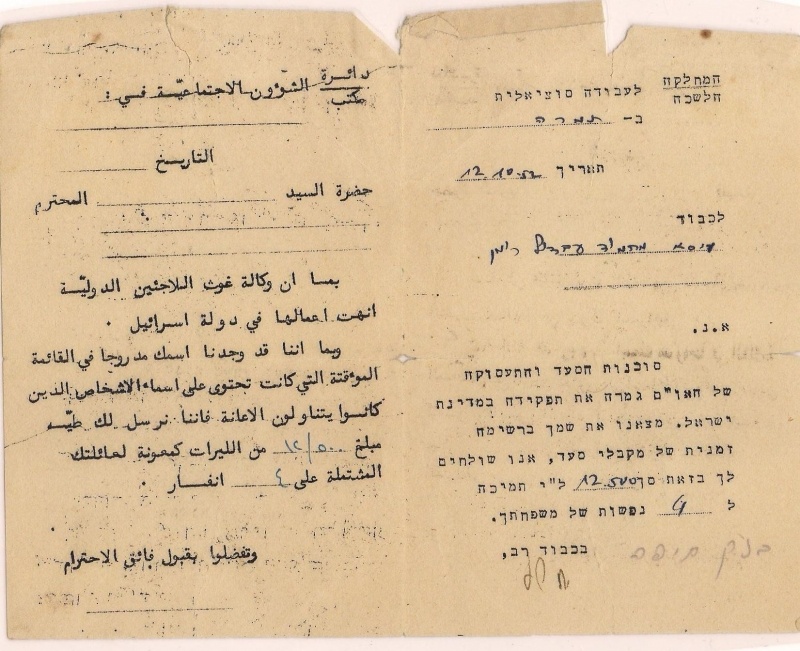 המחלקה
הלשכה
לעבודה סוציאלית
ב- תמרה
תאריך 12.10.52
לכבוד
עיסא
א.נ.
סוכנות הסעד והתעסוקה
של האו"ם גמרה את תפקידה במדינת
ישראל. מצאנו את שמך ברשימה
זמנית של מקבלי סעד, אנו שולחים
לך בזאת סך 12.500 ל"י תמיכה
ל נפשות של משפחתך.
בכבוד רב,
دائرة
مكتب
الشؤون الاجتماعيّة في :
التاريخ
حضرة السيد المحترم
بما ان وكالة غوث اللاجئين الدوليّة
انهت اعمالها في دولة اسرائيل .
وبما اننا قد وجدنا اسمك مدروجا في القائمة
الموءقتة التي كانت تحتوى على اسماء الاشخاص الذين
كانوا يتناولون الاعانة فاننا نرسل لك طيّه
مبلغ ١٢/٥٠٠ من الليرات كمعونة لعائلتك
المشتملة على ٤ انفار .
وتفضلوا بقبول فائق الاحترام